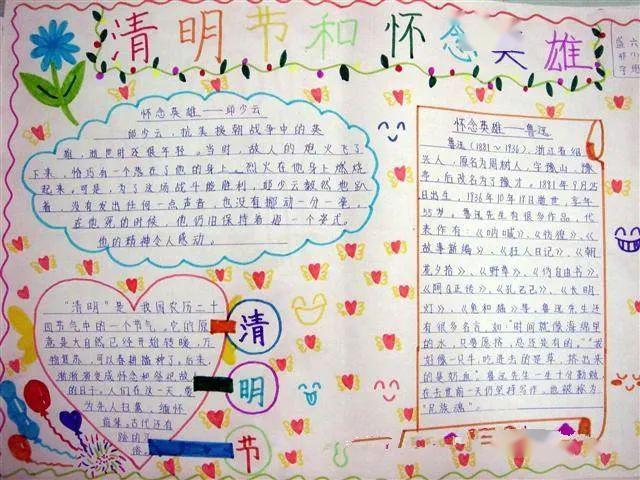 清明节和怀念英雄
怀念英雄——邱少云
邱少云,抗美援朝战争中的英
雄,逝世时还很年轻。当时,敌人的炮火飞了
下来,恰巧有一个忽在了他的身上,烈火在他身上燃烧
起来。可是,为了这场战斗能胜利,邱少云毅然地趴
着,没有发出任何一点声音,也没有挪动一分一毫。
在他死的时候,他仍旧保持着趴一个姿式。
他的精神令人感动。
怀念英雄——鲁迅
鲁迅(1881~1936),浙江省绍
兴人,原名为周树人,字豫山、豫
亭,后改名为予豫才。1881年9月25
日出生,1936年10月19日逝世,享年
55岁。鲁迅先生有很多作品,代
表作有:《呐喊》、《彷徨》、《
故事新编》、《狂人日记》、《朝
花夕拾》、《野草》、《伪自由书》、
《阿Q正传》、《孔乙己》、《长明
灯》、《鱼和猫》等。鲁迅先生还
有很多名言,如:"时间就像海绵里
的水,只要愿挤,总还是有的。""我
刻像一只牛,吃进去的是草,挤出来
的是奶血"鲁迅先生一生十分勤勉
在去世前一天仍坚持写作,也被称为
"民族魂"。
"清明"是我国农历二十
四节气中的一个节气。它的原
意是大自然已经开始转暖,万
物复苏,可以春耕播种了,后来,
渐渐演变成怀念和祭祀故
的日子。人们在这一天,要
为先人扫墓,缅怀
前辈。古代还有
踏的习
俗。
清
明
节